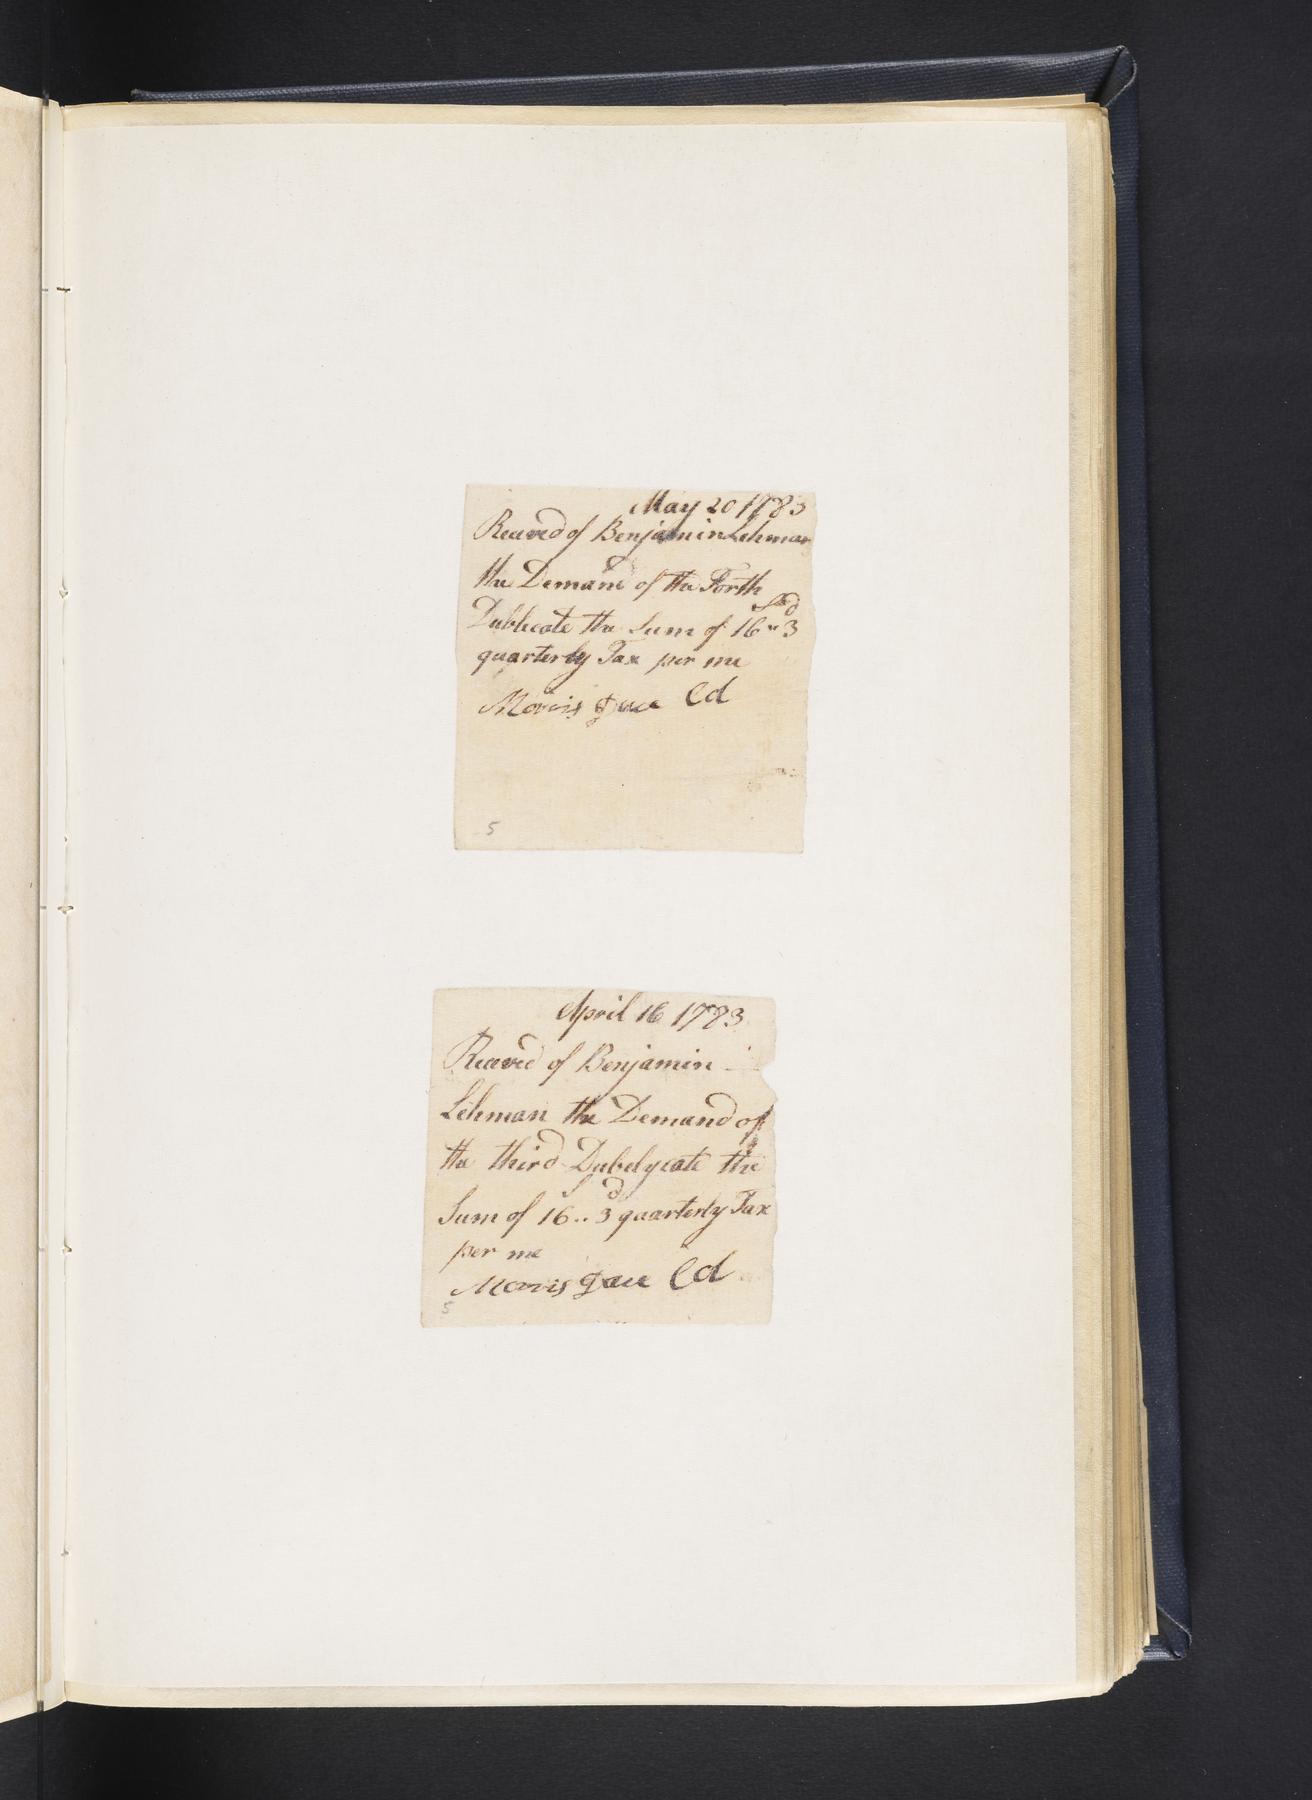 May 20 1783
Receved of Benjamin Lehman
the Demand of the Forth
s d
Dublicate the Sum of 16 " 3
quarterly Tax per me
Morris Cd
5
April 16 1783
Receved of Benjamin
Lehman the Demand of
the third Dubelycate the
s d
Sum of 16 .. 3 quarterly Tax
per me
Morris Cd
5